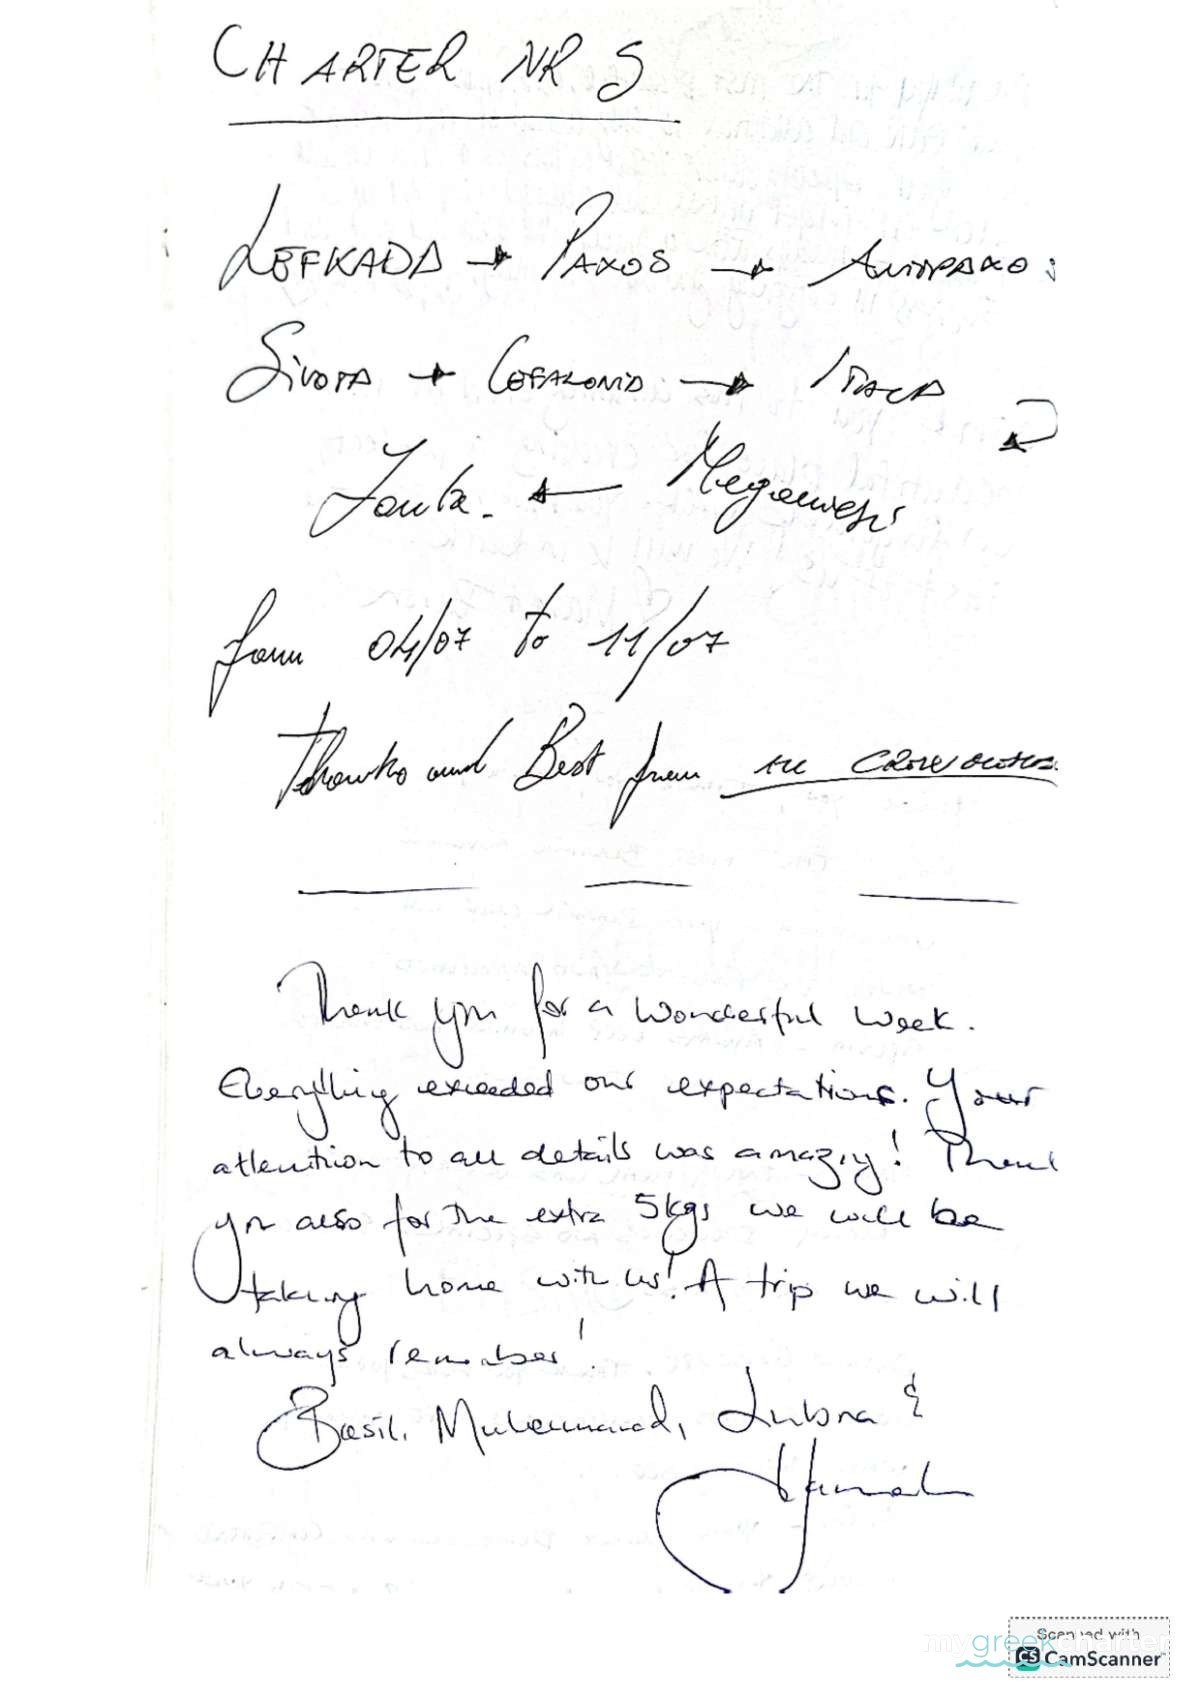 CHARTER NR 5
LEFKADA → PAXOS → ANTIPAXO
SIVOTA → CEFALONIA → ITACA
Meganisi
from 04/07 to 11/07
Thanks and Best from
Thank you for a wonderful week.
Everything exceeded our expectations. Your
attention to all details was amazing! Thank
you also for the extra 5kgs we will be
taking home with us! A trip we will
always remember!
Basil, Muhammad, Lubna &
mygreekcharter
Scanned with
CS CamScanner